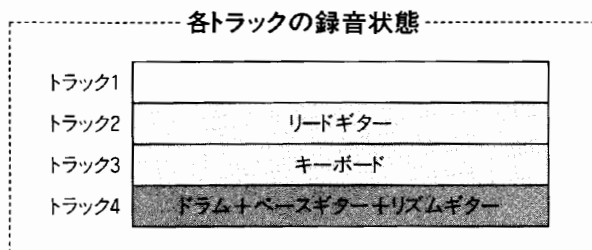 各トラックの録音状態
トラック1
トラック2 リードギター
トラック3 キーボード
トラック4 ドラム＋ベースギター＋リズムギター